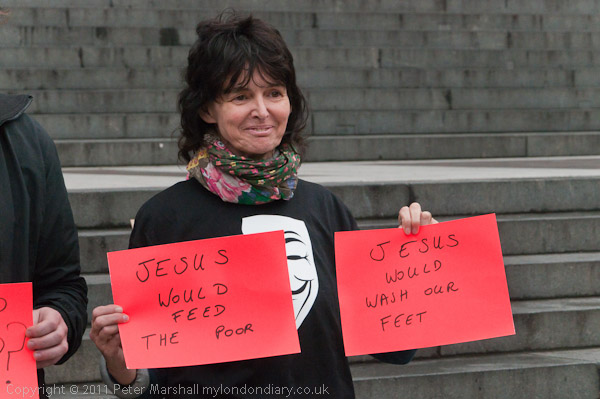 JESUS
WOULD
FEED
THE POOR
JESUS
WOULD
WASH OUR
FEET
?
Copyright © 2011 Peter Marshall mylondondiary.co.uk